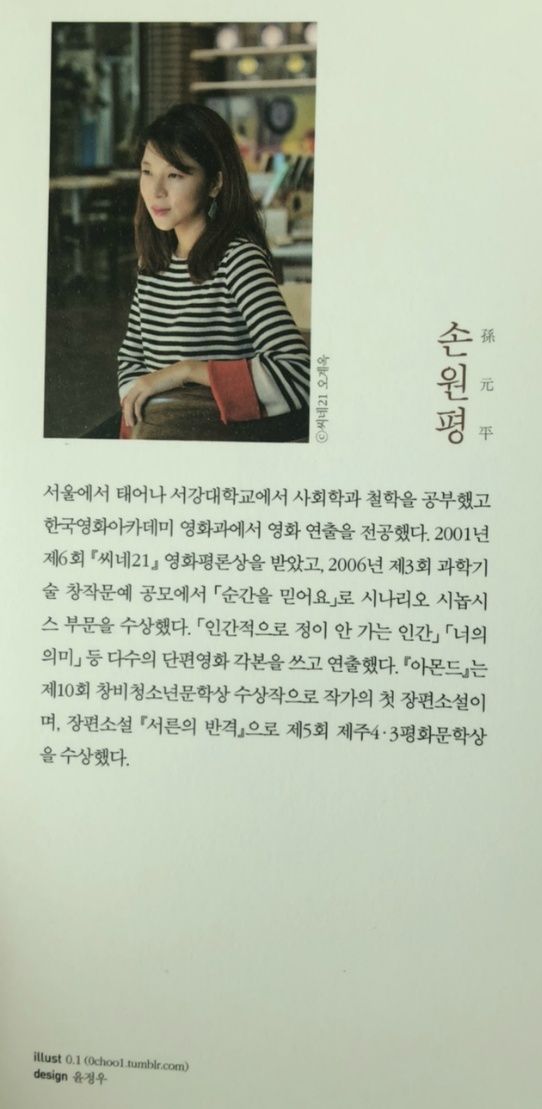 ⓒ씨네21 오계옥
손원평
孫元平
서울에서 태어나 서강대학교에서 사회학과 철학을 공부했고
한국영화아카데미 영화과에서 영화 연출을 전공했다. 2001년
제6회 『씨네21』 영화평론상을 받았고, 2006년 제3회 과학기
술 창작문예 공모에서 「순간을 믿어요」로 시나리오 시놉시
스 부문을 수상했다. 「인간적으로 정이 안 가는 인간」 「너의
의미」 등 다수의 단편영화 각본을 쓰고 연출했다. 『아몬드』는
제10회 창비청소년문학상 수상작으로 작가의 첫 장편소설이
며, 장편소설 『서른의 반격』으로 제5회 제주4·3평화문학상
을 수상했다.
illust 0.1 (0choo1.tumblr.com)
design 윤정우